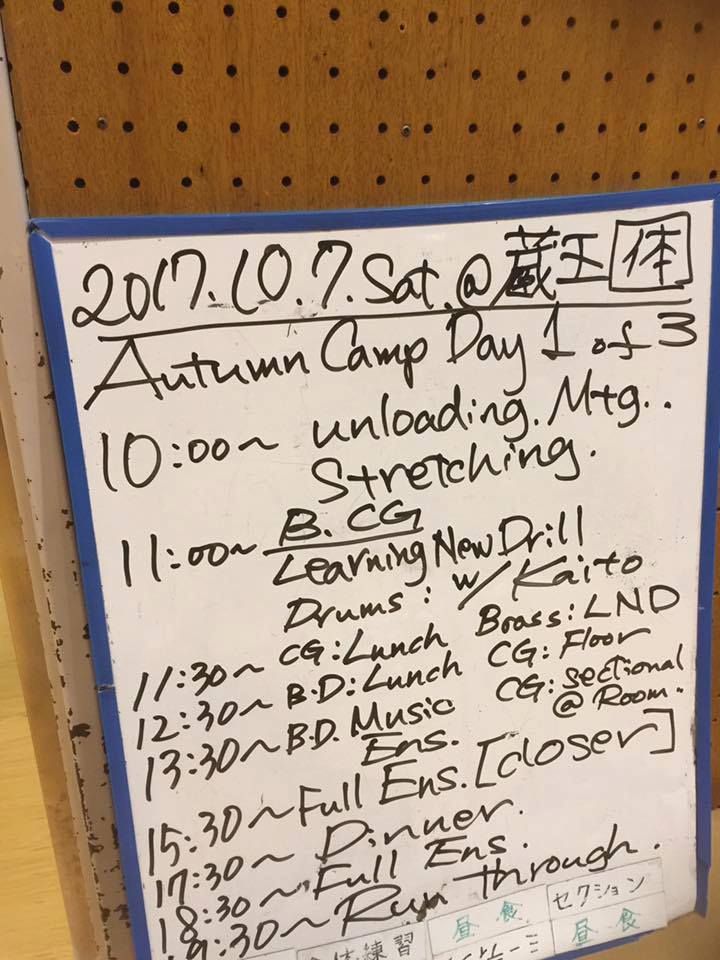 2017.10.7.Sat.@蔵王体
Autumn Camp Day 1 of 3
10:00~ unloading. Mtg..
Stretching.
11:00~ B. CG
Learning New Drill
Drums: w/ Kaito
11:30~ CG: Lunch Brass: LND
12:30~ B.D: Lunch CG: Floor
13:30~ B.D. Music CG: sectional
Ens. @ Room.
15:30~ Full Ens. [closer]
17:30~ Dinner.
18:30~ Full Ens.
19:30~ Run through.
練習 昼食 セクション
昼食